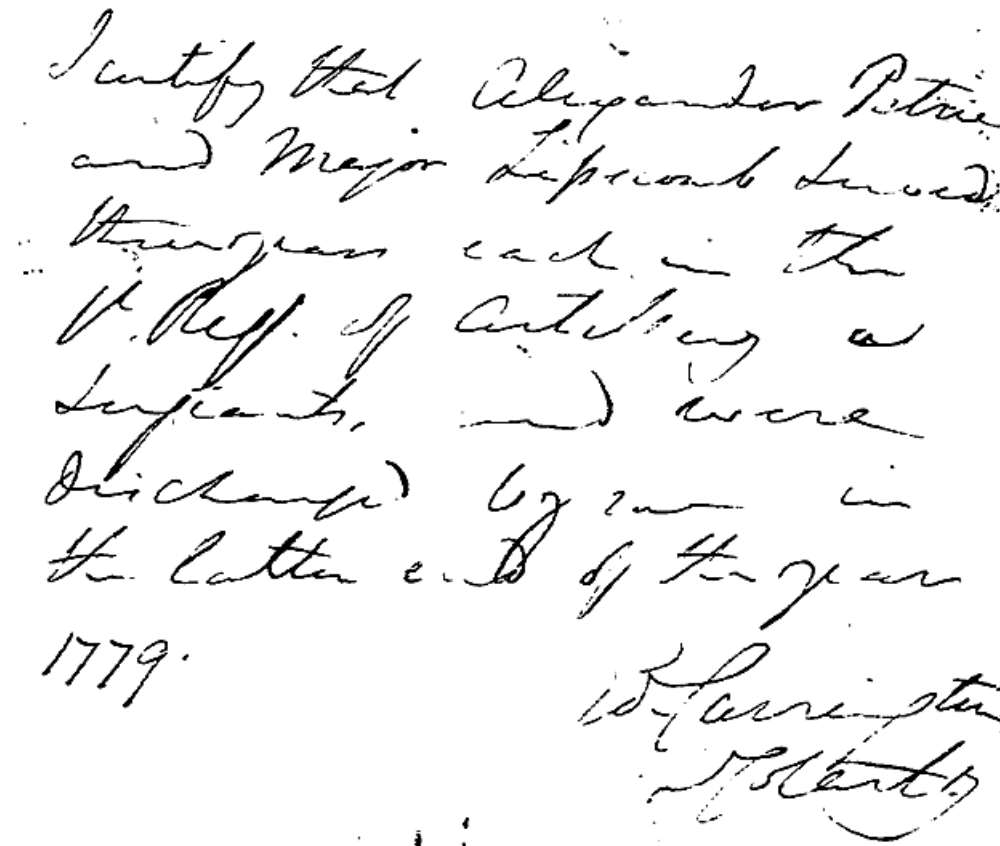 I certify that Alexander Petrie
and Major Lipscomb Served
three years each in the
V. Regt. of Artillery as
Sergeants, and were
Discharged by me in
the latter end of the year
1779.
Carrington